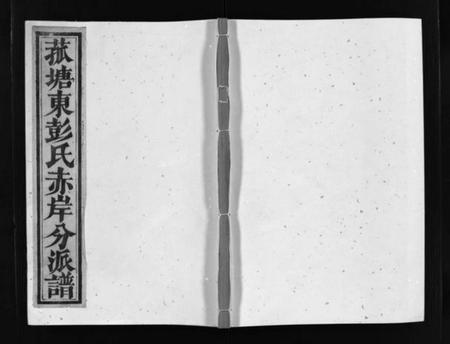 菰塘東彭氏赤岸分派譜